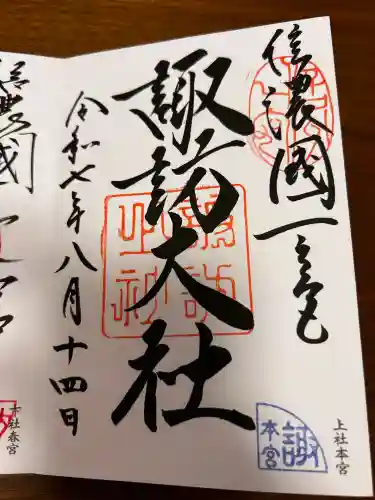 信濃國一之宮
諏訪大社
令和七年八月十四日
上社本宮
諏
本宮
諏訪
上社
信濃國一之宮
下社春宮